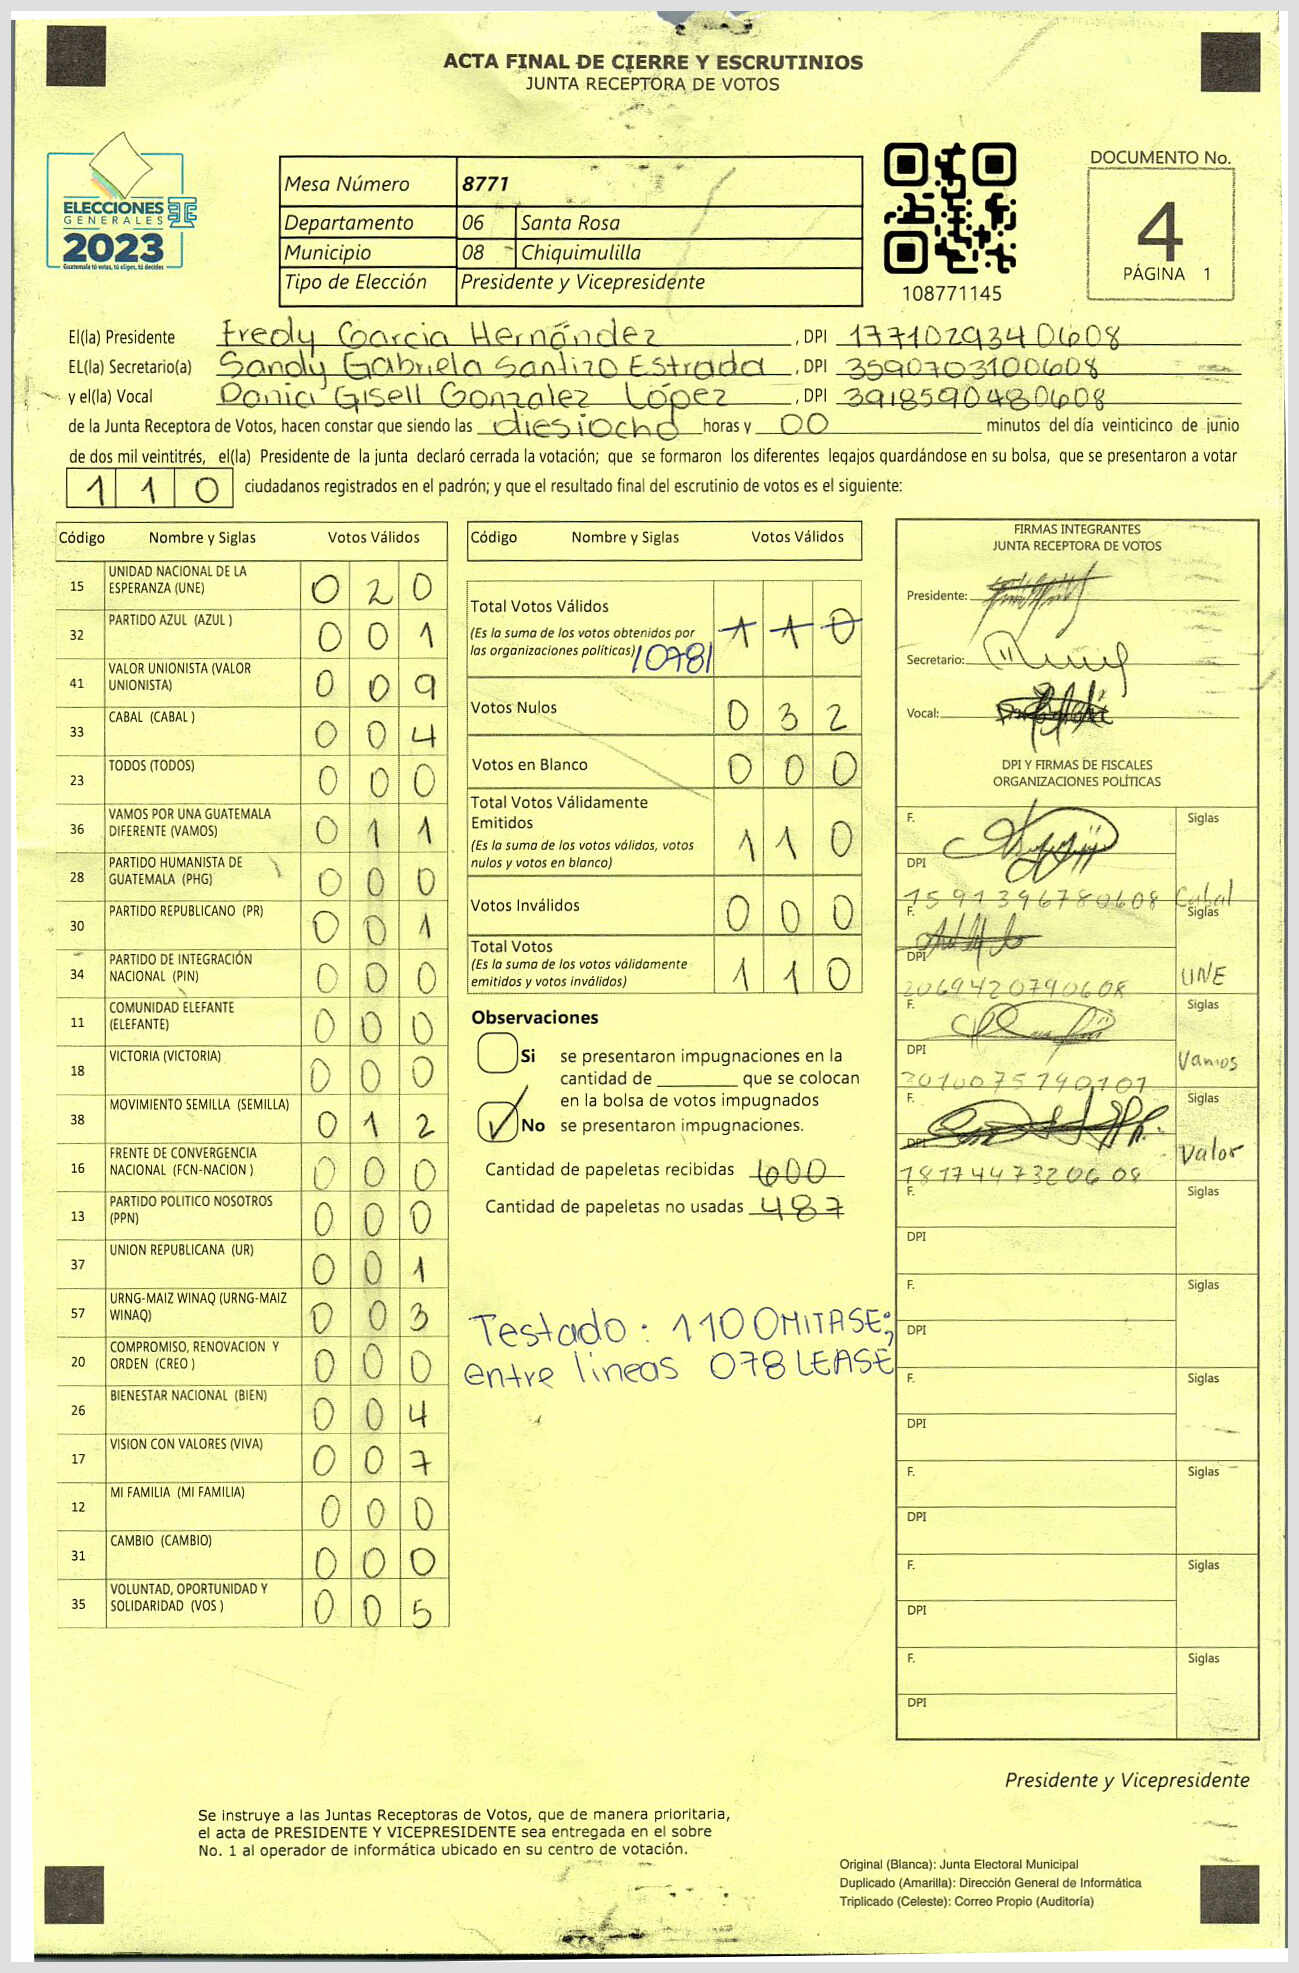 ACTA FINAL DE CIERRE Y ESCRUTINIOS
JUNTA RECEPTORA DE VOTOS
ELECCIONES
GENERALES
2023
Guatemala tú votas, tú eliges, tú decides
Mesa Número 8771
Departamento 06 Santa Rosa
Municipio 08 Chiquimulilla
Tipo de Elección Presidente y Vicepresidente
108771145
DOCUMENTO No.
4
PÁGINA 1
El(la) Presidente Fredy Garcia Hernández, DPI 1771029340608
EL(la) Secretario(a) Sandy Gabriela Santizo Estrada, DPI 3590703100608
y el(la) Vocal Gisell Gonzalez López, DPI 3918590480608
de la Junta Receptora de Votos, hacen constar que siendo las diesiocho horas y 00 minutos del día veinticinco de junio
de dos mil veintitrés, el(la) Presidente de la junta declaró cerrada la votación; que se formaron los diferentes legajos guardándose en su bolsa, que se presentaron a votar
110 ciudadanos registrados en el padrón; y que el resultado final del escrutinio de votos es el siguiente:
Código Nombre y Siglas Votos Válidos
15 UNIDAD NACIONAL DE LA ESPERANZA (UNE) 0 2 0
32 PARTIDO AZUL (AZUL ) 0 0 1
41 VALOR UNIONISTA (VALOR UNIONISTA) 0 0 9
33 CABAL (CABAL ) 0 0 4
23 TODOS (TODOS) 0 0 0
36 VAMOS POR UNA GUATEMALA DIFERENTE (VAMOS) 0 1 1
28 PARTIDO HUMANISTA DE GUATEMALA (PHG) 0 0 0
30 PARTIDO REPUBLICANO (PR) 0 0 1
34 PARTIDO DE INTEGRACIÓN NACIONAL (PIN) 0 0 0
11 COMUNIDAD ELEFANTE (ELEFANTE) 0 0 0
18 VICTORIA (VICTORIA) 0 0 0
38 MOVIMIENTO SEMILLA (SEMILLA) 0 1 2
16 FRENTE DE CONVERGENCIA NACIONAL (FCN-NACION ) 0 0 0
13 PARTIDO POLITICO NOSOTROS (PPN) 0 0 0
37 UNION REPUBLICANA (UR) 0 0 1
57 URNG-MAIZ WINAQ (URNG-MAIZ WINAQ) 0 0 3
20 COMPROMISO, RENOVACION Y ORDEN (CREO ) 0 0 0
26 BIENESTAR NACIONAL (BIEN) 0 0 4
17 VISION CON VALORES (VIVA) 0 0 7
12 MI FAMILIA (MI FAMILIA) 0 0 0
31 CAMBIO (CAMBIO) 0 0 0
35 VOLUNTAD, OPORTUNIDAD Y SOLIDARIDAD (VOS ) 0 0 5
Código Nombre y Siglas Votos Válidos
Total Votos Válidos 1 1 0
(Es la suma de los votos obtenidos por
las organizaciones políticas) /078/
Votos Nulos 0 3 2
Votos en Blanco 0 0 0
Total Votos Válidamente
Emitidos 1 1 0
(Es la suma de los votos válidos, votos
nulos y votos en blanco)
Votos Inválidos 0 0 0
Total Votos 1 1 0
(Es la suma de los votos válidamente
emitidos y votos inválidos)
Observaciones
Si se presentaron impugnaciones en la
cantidad de ________ que se colocan
en la bolsa de votos impugnados
No se presentaron impugnaciones.
Cantidad de papeletas recibidas 600
Cantidad de papeletas no usadas 487
Testado: 110 OMITASE;
entre lineas 078 LEASE
FIRMAS INTEGRANTES
JUNTA RECEPTORA DE VOTOS
Presidente:
Secretario:
Vocal:
DPI Y FIRMAS DE FISCALES
ORGANIZACIONES POLÍTICAS
F. Siglas
DPI 1591396780608 Cabal
F. Siglas
DPI 2069420790608 UNE
F. Siglas
DPI 2010075140101 Vamos
F. Siglas
DPI 1817447320608 Valor
F. Siglas
DPI
F. Siglas
DPI
F. Siglas
DPI
F. Siglas
DPI
F. Siglas
DPI
F. Siglas
DPI
Presidente y Vicepresidente
Se instruye a las Juntas Receptoras de Votos, que de manera prioritaria,
el acta de PRESIDENTE Y VICEPRESIDENTE sea entregada en el sobre
No. 1 al operador de informática ubicado en su centro de votación.
Original (Blanca): Junta Electoral Municipal
Duplicado (Amarilla): Dirección General de Informática
Triplicado (Celeste): Correo Propio (Auditoría)